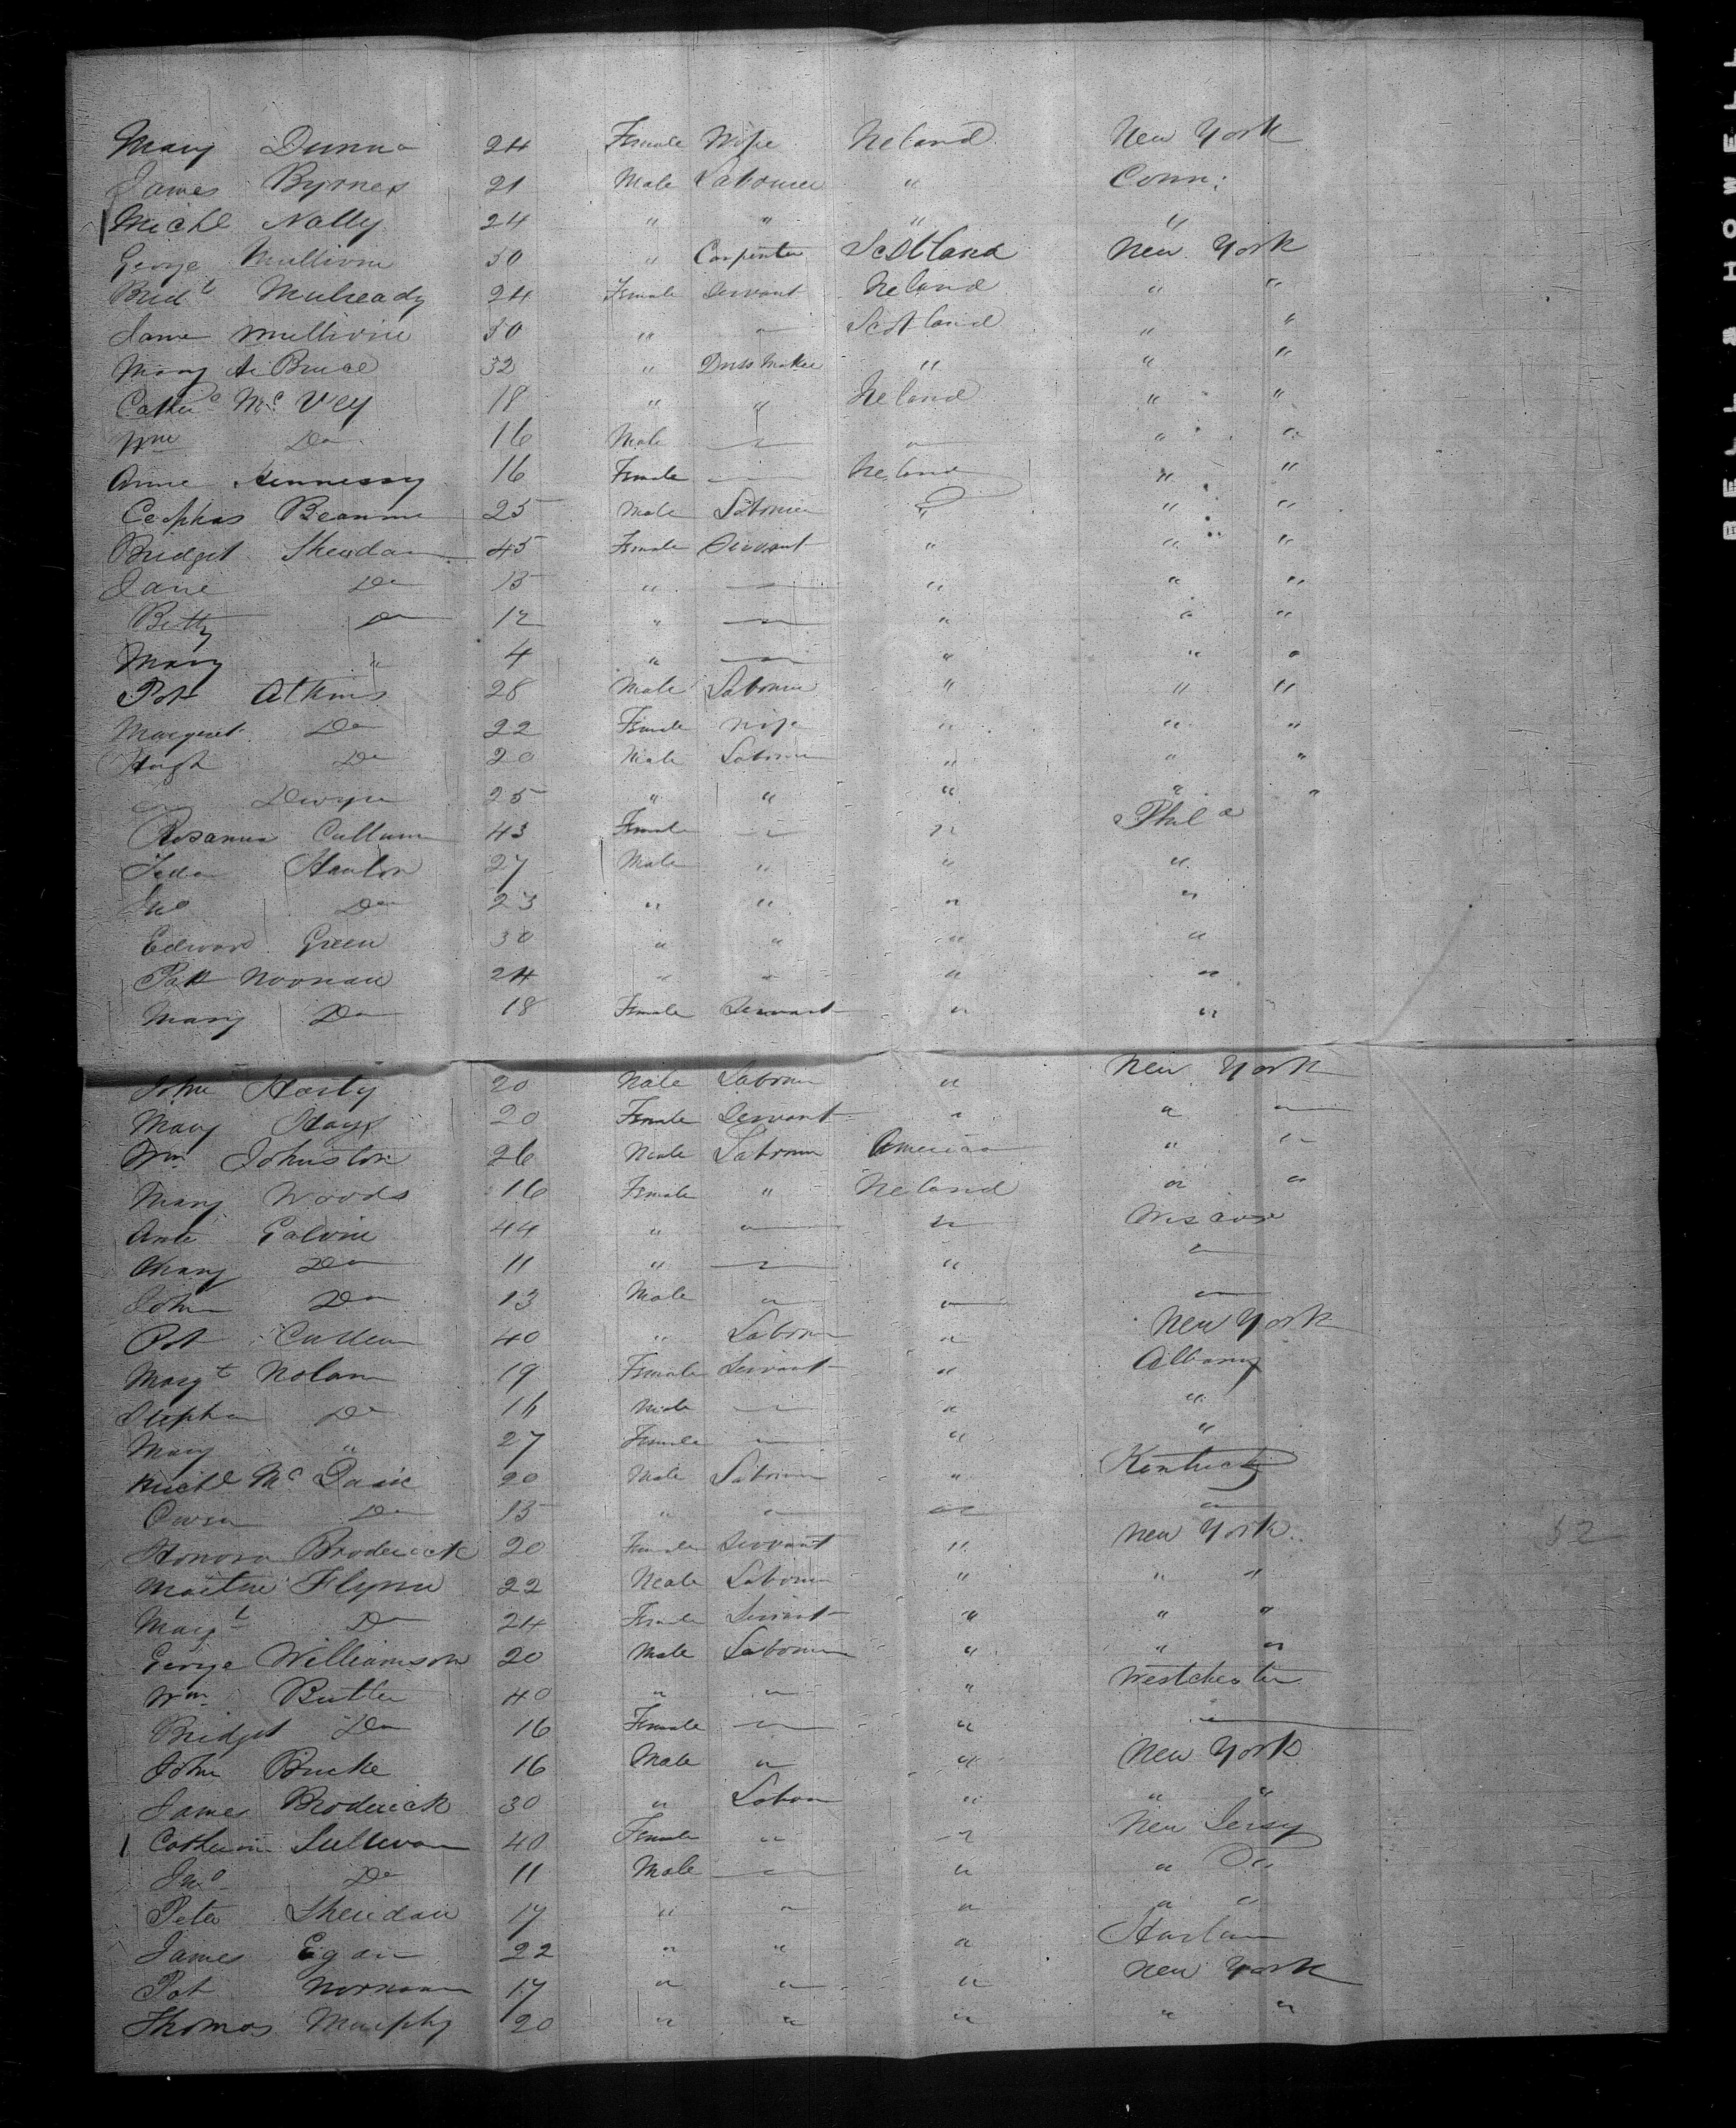 Mary Dunn 24 Female Wife Ireland New York
James Byrnes 21 Male Labourer " Conn:
Michl Nally 24 " " " "
George 50 " Carpenter Scotland New York
Bridt Mulready 24 Female Servant Ireland " "
Jane 50 " " Scotland " "
Mary A. Bruce 32 " Dress Maker " " "
Cathe McVey 18 " " Ireland " "
Wm Do 16 Male " " " "
Anne Hennessy 16 Female Ireland " "
Cephas 25 Male Labourer " " "
Bridget Sheridan 45 Female Servant " " "
Jane Do 15 " " " "
Betty Do 12 " " " " "
Mary " 4 " " " " "
Pat Atkins 28 Male Labourer " " "
Margaret Do 22 Female Wife " " "
Hugh Do 20 Male Labourer " " "
Dwyer 25 " " " " "
Rosanna Cullum 43 Female " " Phila
Hanlon 27 Male " " "
Jno Do 23 " " " "
Edward Green 30 " " " "
Patk Noonan 24 " " " "
Mary Do 18 Female Servant " "
John Hasty 20 Male Labourer " New York
Mary Hayes 20 Female Servant " " "
Wm Johnston 26 Male Labourer American " "
Mary Woods 16 Female " Ireland " "
Ann Galvin 44 " " "
Mary Do 11 " " " "
John Do 13 Male " " "
Pat Cullen 40 " Labourer " New York
Margt Nolan 19 Female Servant " Albany
Stephen Do 16 Male " "
Mary " 27 Female " " "
Michl Mc 20 Male Labourer " Kentucky
Owen Do 15 " " " "
Honora Broderick 20 Female Servant " New York
Martin Flynn 22 Male Labourer " " "
Margt Do 24 Female Servant " " "
George Williamson 20 Male Labourer " " "
Wm Butler 40 " " " Westchester
Bridget Do 16 Female " " "
John Burke 16 Male " " New York
James Broderick 30 " Labour " " "
Catherine Sullivan 40 Female " " New Jersy
Jno Do 11 Male " " "
Peter Sheridan 17 " " " " "
James Egan 22 " " " Harlam
Pat Noonan 17 " " " New York
Thomas Murphy 20 " " " " "
52
BELL & HOWELL